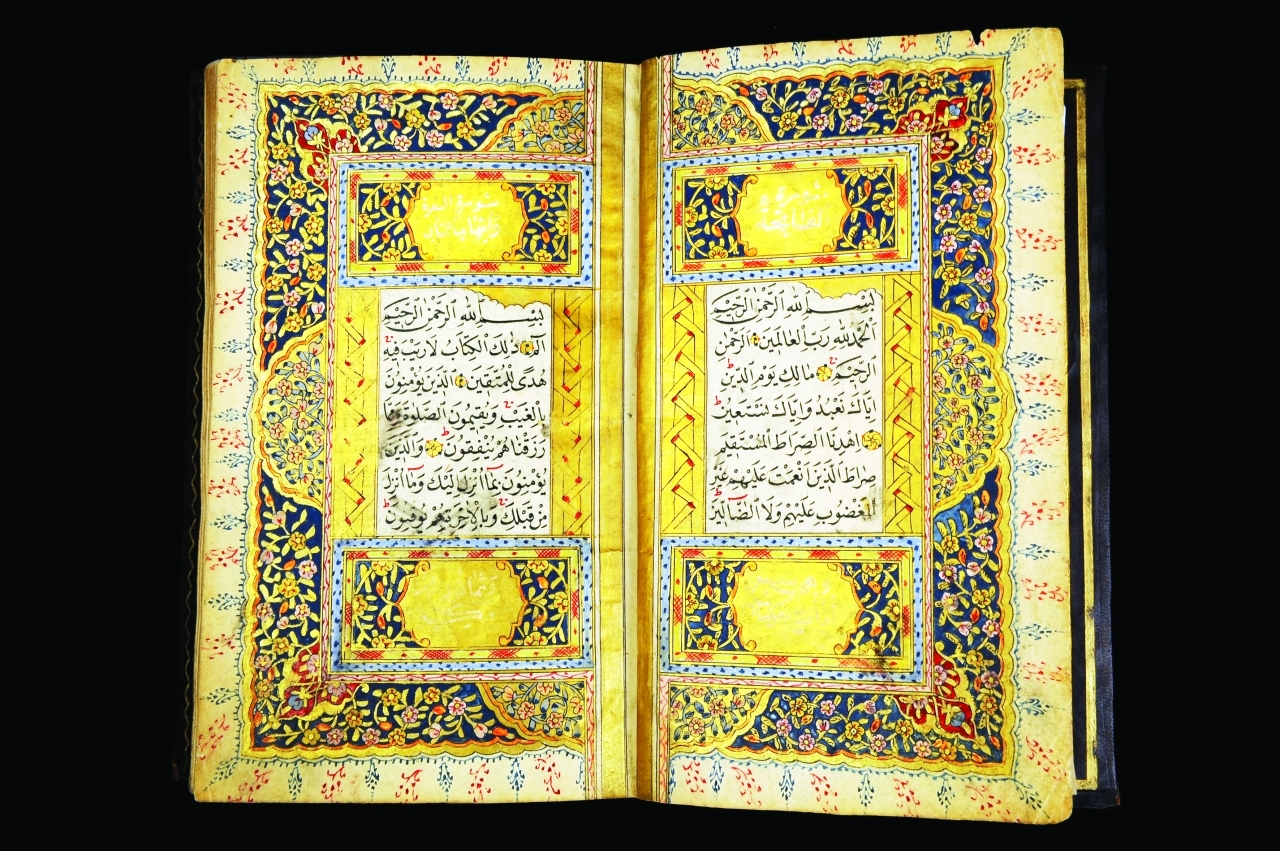 سورة
الفاتحة
بسم الله الرحمن الرحيم
الحمد لله رب العالمين الرحمن
الرحيم مالك يوم الدين
اياك نعبد واياك نستعين
اهدنا الصراط المستقيم
صراط الذين انعمت عليهم غير
المغضوب عليهم ولا الضالين
سورة البقرة
بسم الله الرحمن الرحيم
الم ذلك الكتاب لا ريب فيه
هدى للمتقين الذين يؤمنون
بالغيب ويقيمون الصلوة ومما
رزقناهم ينفقون والذين
يؤمنون بما انزل اليك وما انزل
من قبلك وبالاخرة هم يوقنون